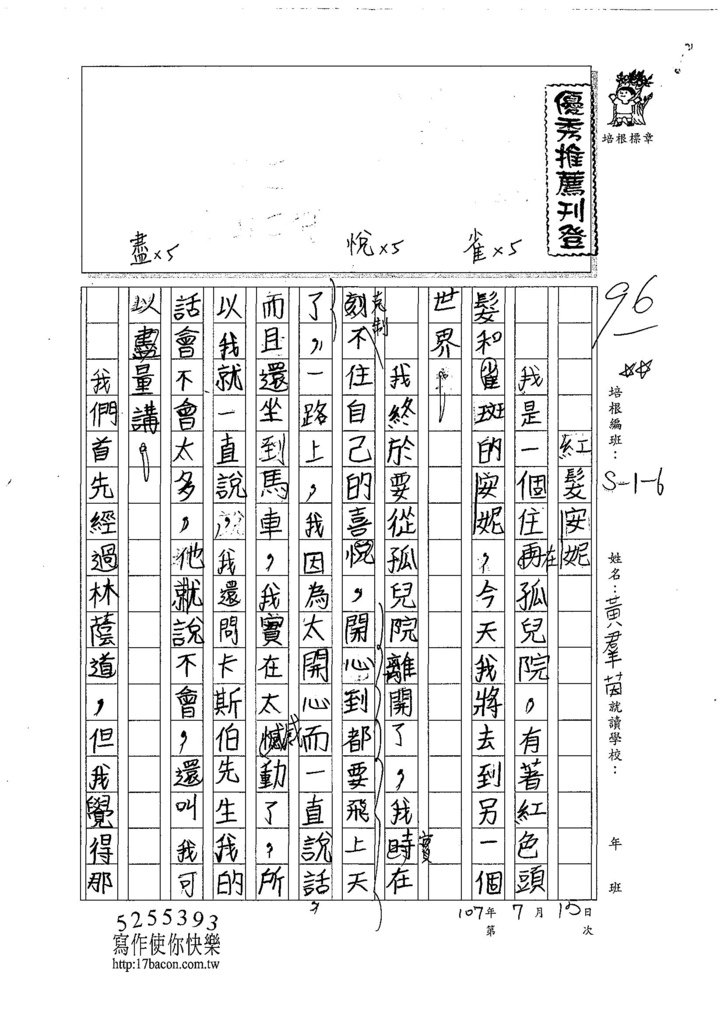 培根標章
優秀推薦刊登
雀×5
悅×5
盡×5
96
培根編班：S-1-6
姓名：黃羣茵
就讀學校：
年 班
107年7月15日
第 次
紅髮安妮
我是一個住再在孤兒院，有著紅色頭
髮和雀斑的安妮，今天我將去到另一個
世界。
我終於要從孤兒院離開了，我時實在
刻克制不住自己的喜悅，開心到都要飛上天
了，一路上，我因為太開心而一直說話，
而且還坐到馬車，我實在太憾感動了，所
以我就一直說，我還問卡斯伯先生我的
話會不會太多，他就說不會，還叫我可
以盡量講。
我們首先經過林蔭道，但我覺得那
5255393
寫作使你快樂
http:17bacon.com.tw